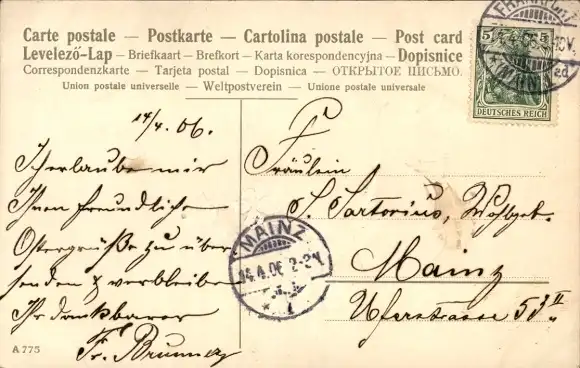 Carte postale — Postkarte — Cartolina postale — Post card
Levelező-Lap — Briefkaart — Brefkort — Karta korespondencyjna — Dopisnice
Correspondenzkarte — Tarjeta postal — Dopisnica — ОТКРЫТОЕ ПИСЬМО.
Union postale universelle — Weltpostverein — Unione postale universale
5 5
DEUTSCHES REICH
FRANKFURT
14/4. 06.
Ich erlaube mir
Ihnen freundliche
Ostergrüße zu über
senden & verbleibe
Ihr dankbarer
Fr. Brunner
Fräulein
S. Sartorius, Wohlgeb.
Mainz
Uferstrasse 53 II
MAINZ
14.4.06 2-3N
* 1
A 775